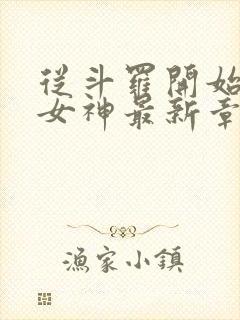 從斗羅開始
女神最新章
漁家小鎮